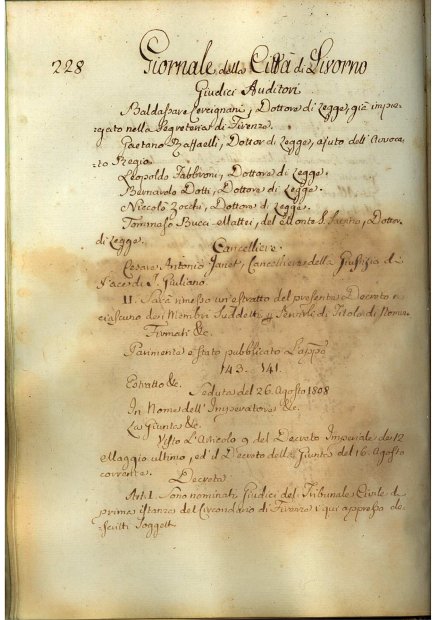 228 Giornale della Città di Livorno
Giudici Auditori
Baldassare Cercignani, Dottore di Legge, già impie-
gato nella Segreteria di Firenze.
Gaetano Raffaelli, Dottor di Legge, ajuto dell'Avvoca-
to Regio
Leopoldo Fabbroni, Dottore di Legge.
Bernardo Dotti, Dottore di Legge.
Niccolò Zocchi, Dottore di Legge.
Tommaso Bucci-Mattei, del Monte S. Savino, Dottor
di Legge.
Cancelliere
Cesare Antonio Cancelliere della Giustizia di
Pace di S. Giuliano
11. Sarà rimesso un'estratto del presente Decreto a
ciascuno dei Membri suddetti Servirle di Titolo di Nomina
Firmati &c.
Parimente è stato pubblicato l'app.so
143 - 141.
Estratto &c.
Seduta del 26 Agosto 1808
In Nome dell'Imperatore &c.
La Giunta &c.
Visto l'Articolo 9 del Decreto Imperiale de 12
Maggio ultimo, ed il Decreto della Giunta del 16 Agosto
corrente.
Decreta
Art. 1. Sono nominati Giudici del Tribunale Civile di
prima istanza del Circondario di Firenze i qui appresso de-
scritti Soggetti